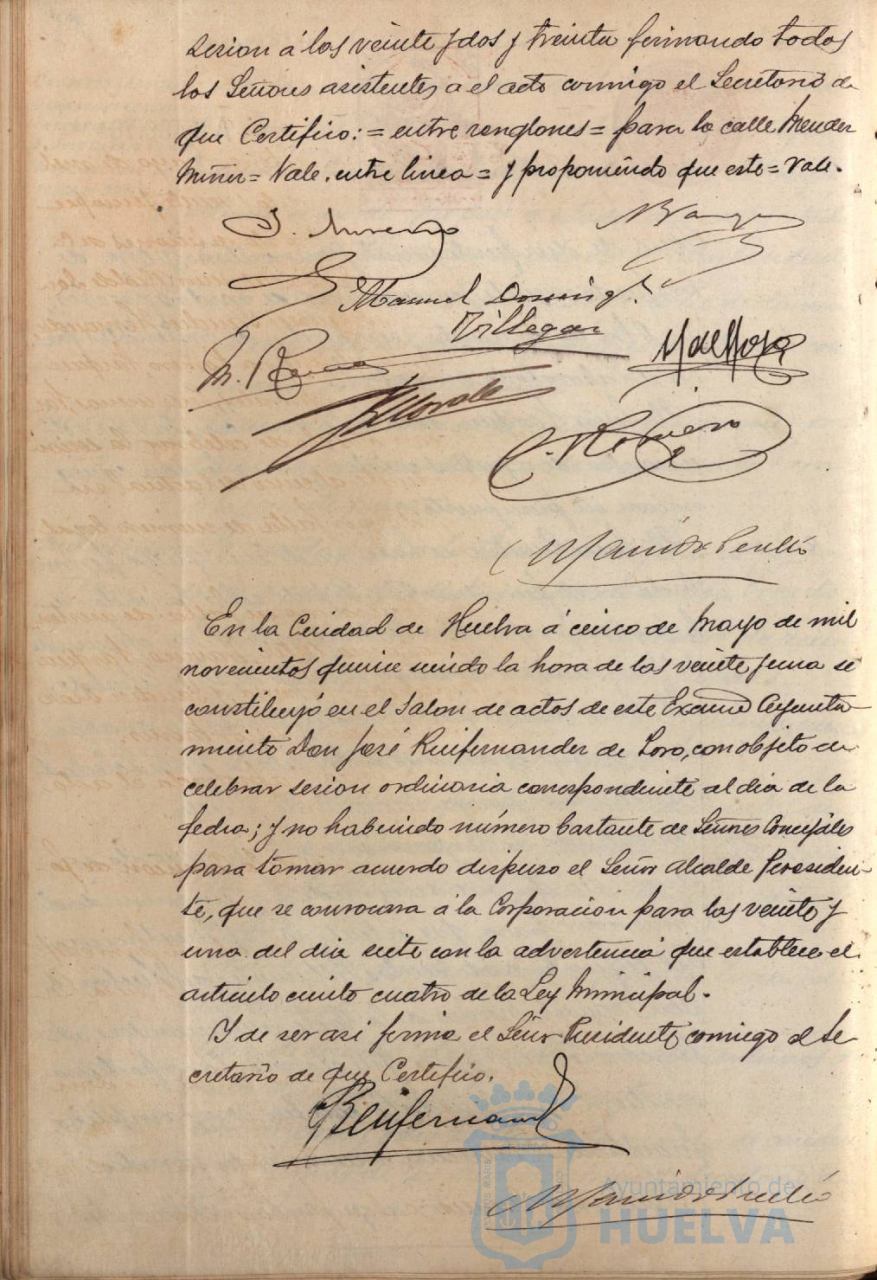 sesion á las veinte y dos y treinta firmando todos
los Señores asistentes a el acto conmigo el Secretario de
que Certifico: = entre renglones = para la calle Mendez
Miñez = Vale. entre linea = y proponiendo que este = Vale.
J. Moreno
Manuel Doming.
Villegas
C. Romero
En la Ciudad de Huelva á cinco de Mayo de mil
novecientos quince siendo la hora de las veinte y una se
constituyó en el Salon de actos de este Excmo Ayunta-
miento Don José Ruifernandez de Toro, con objeto de
celebrar sesion ordinaria correspondiente al dia de la
fecha; y no habiendo número bastante de Señores Concejales
para tomar acuerdo dispuso el Señor Alcalde Presiden-
te, que se convocara á la Corporacion para las veinte y
una del dia siete con la advertencia que establece el
articulo ciento cuatro de la Ley Municipal.
Y de ser asi firma el Señor Presidente conmigo el Se
cretario de que Certifico.
Ruifernandez
Ayuntamiento de
HUELVA